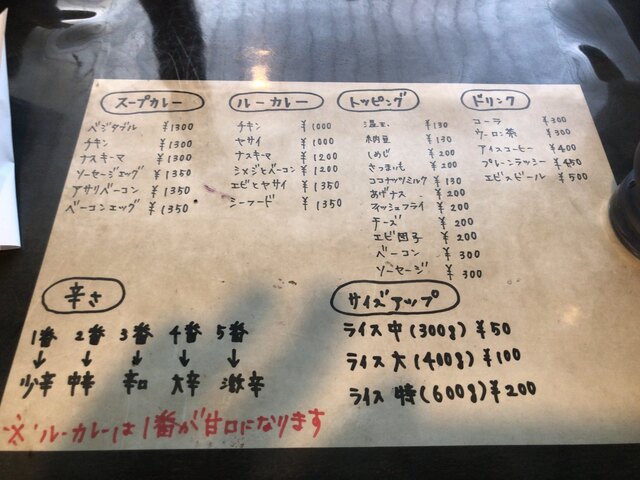 スープカレー
ベジタブル ¥1300
チキン ¥1300
ナスキーマ ¥1300
ソーセージエッグ ¥1350
アサリベーコン ¥1350
ベーコンエッグ ¥1350
ルーカレー
チキン ¥1000
ヤサイ ¥1000
ナスキーマ ¥1200
シメジとベーコン ¥1200
エビとヤサイ ¥1350
シーフード ¥1350
トッピング
温玉 ¥130
納豆 ¥130
しめじ ¥200
さつまいも ¥200
ココナッツミルク ¥130
あげナス ¥200
フィッシュフライ ¥200
チーズ ¥200
エビ団子 ¥200
ベーコン ¥300
ソーセージ ¥300
ドリンク
コーラ ¥300
ウーロン茶 ¥300
アイスコーヒー ¥400
プレーンラッシー ¥450
エビスビール ¥500
辛さ
1番 2番 3番 4番 5番
↓ ↓ ↓ ↓ ↓
少辛 中辛 辛口 大辛 激辛
※ルーカレーは1番が甘口になります
サイズアップ
ライス 中(300g) ¥50
ライス 大(400g) ¥100
ライス 特(600g) ¥200